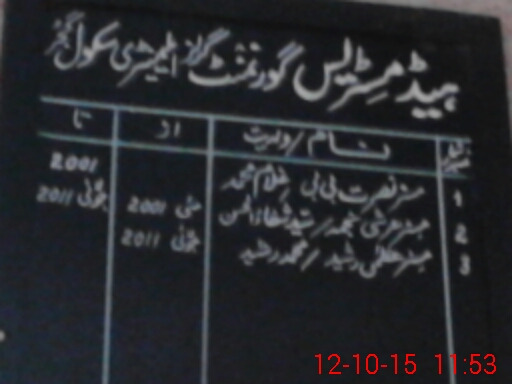 ہیڈ مسٹریس گورنمنٹ گرلز ایلیمنٹری سکول
نمبر شمار نام / ولدیت از تا
1 مسز نصرت بی بی / غلام محمد 2001
2 مسز عرشی نجمہ / سید شفاء الحسن مئی 2001 جولائی 2011
3 مسز عظمی رشید / محمد رشید جولائی 2011
12-10-15 11:53